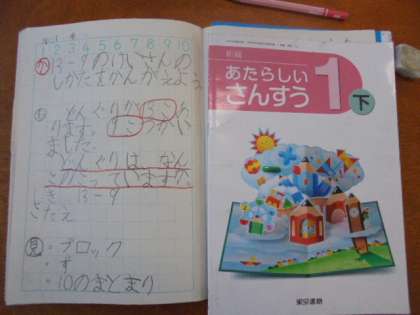 1 2 3 4 5 6 7 8 9 10
か 13-9のけいさんの
しかたをかんがえよう
どんぐりが13こ
ります。9こつかい
ました。
どんぐりは なん
このこっていますか
しき 13-9
こたえ
見 ・ブロック
・ず
・10のまとまり
新編
あたらしい
さんすう
1
下
東京書籍